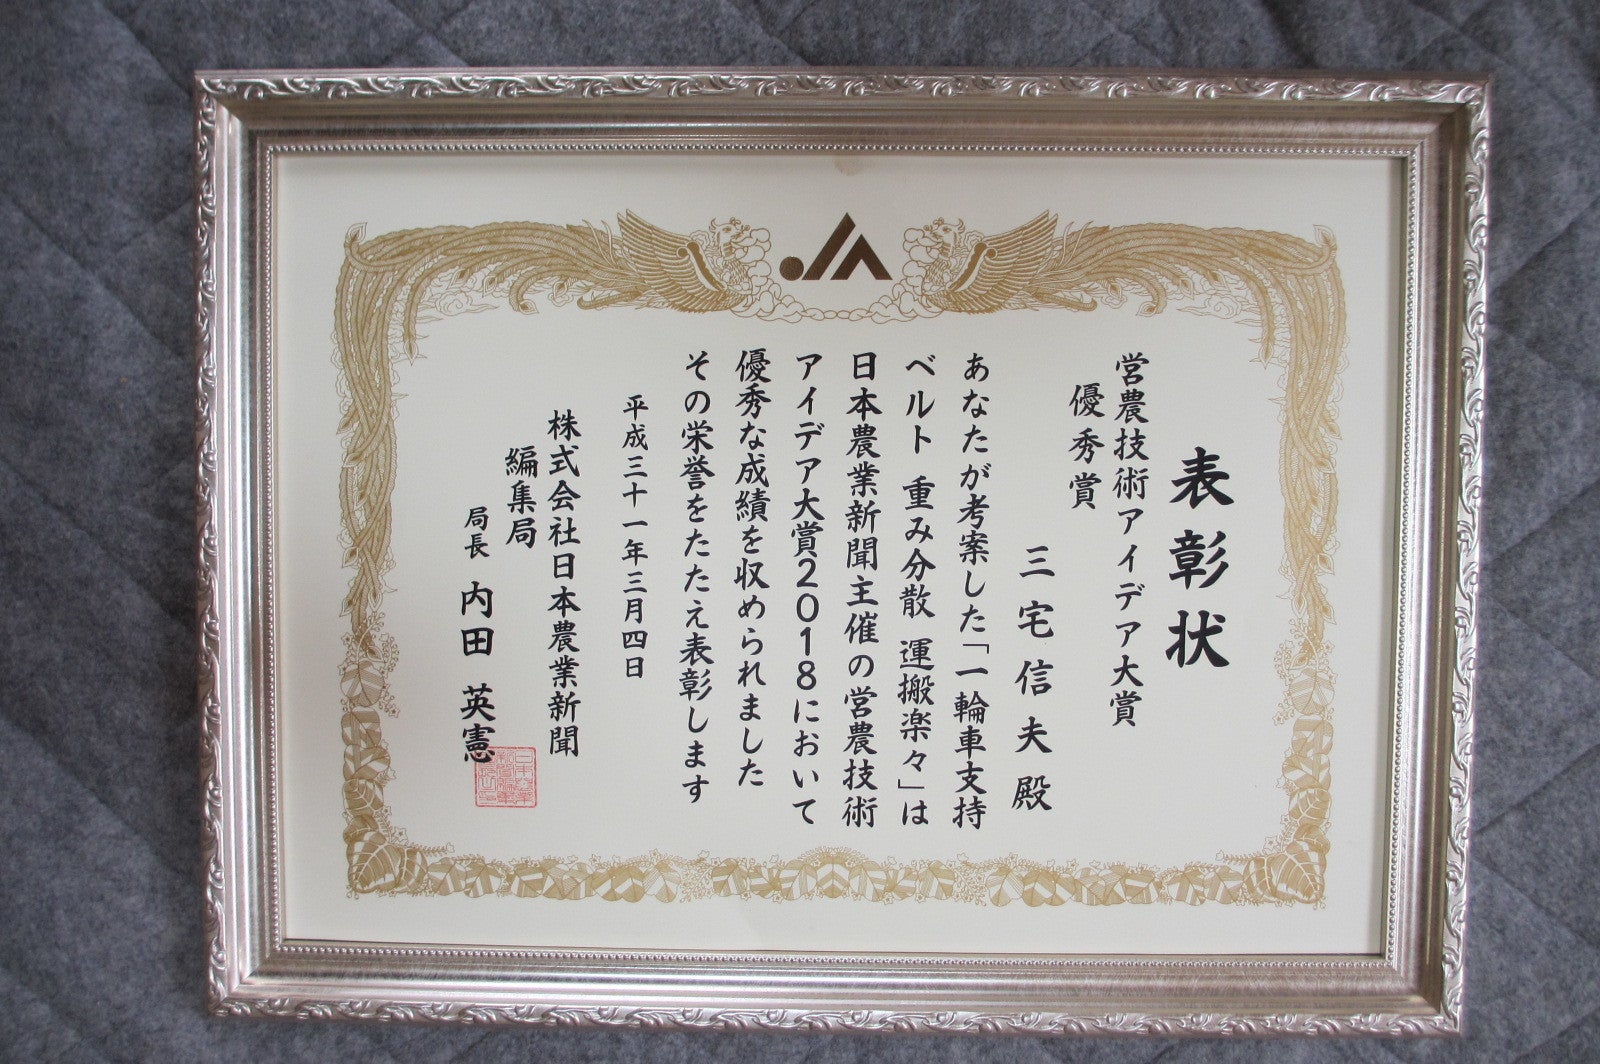 表彰状
営農技術アイデア大賞
優秀賞
三宅信夫殿
あなたが考案した「一輪車支持
ベルト 重み分散 運搬楽々」は
日本農業新聞主催の営農技術
アイデア大賞2018において
優秀な成績を収められました
その栄誉をたたえ表彰します
平成三十一年三月四日
株式会社日本農業新聞
編集局
局長 内田 英憲